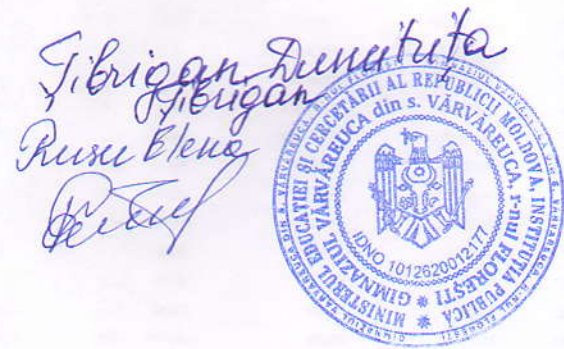 Țibrigan Dumitrița
Țibrigan
Rusu Elena
MINISTERUL EDUCAȚIEI ȘI CERCETĂRII AL REPUBLICII MOLDOVA, INSTITUȚIA PUBLICĂ
GIMNAZIUL VĂRVĂREUCA din s. VĂRVĂREUCA, r-nul FLOREȘTI
IDNO 1012620012177